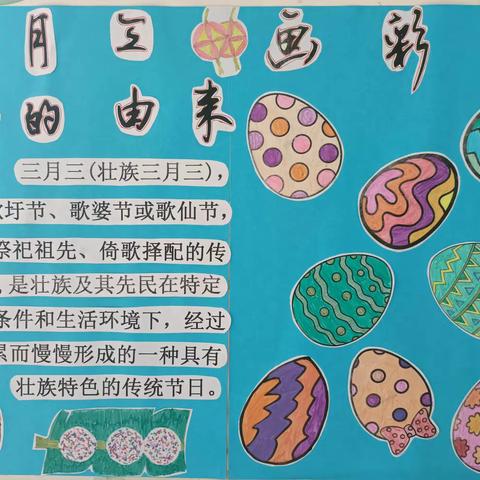 月三 画彩
的由来
三月三(壮族三月三),
圩节、歌婆节或歌仙节,
祭祀祖先、倚歌择配的传
,是壮族及其先民在特定
条件和生活环境下，经过
累而慢慢形成的一种具有
壮族特色的传统节日。